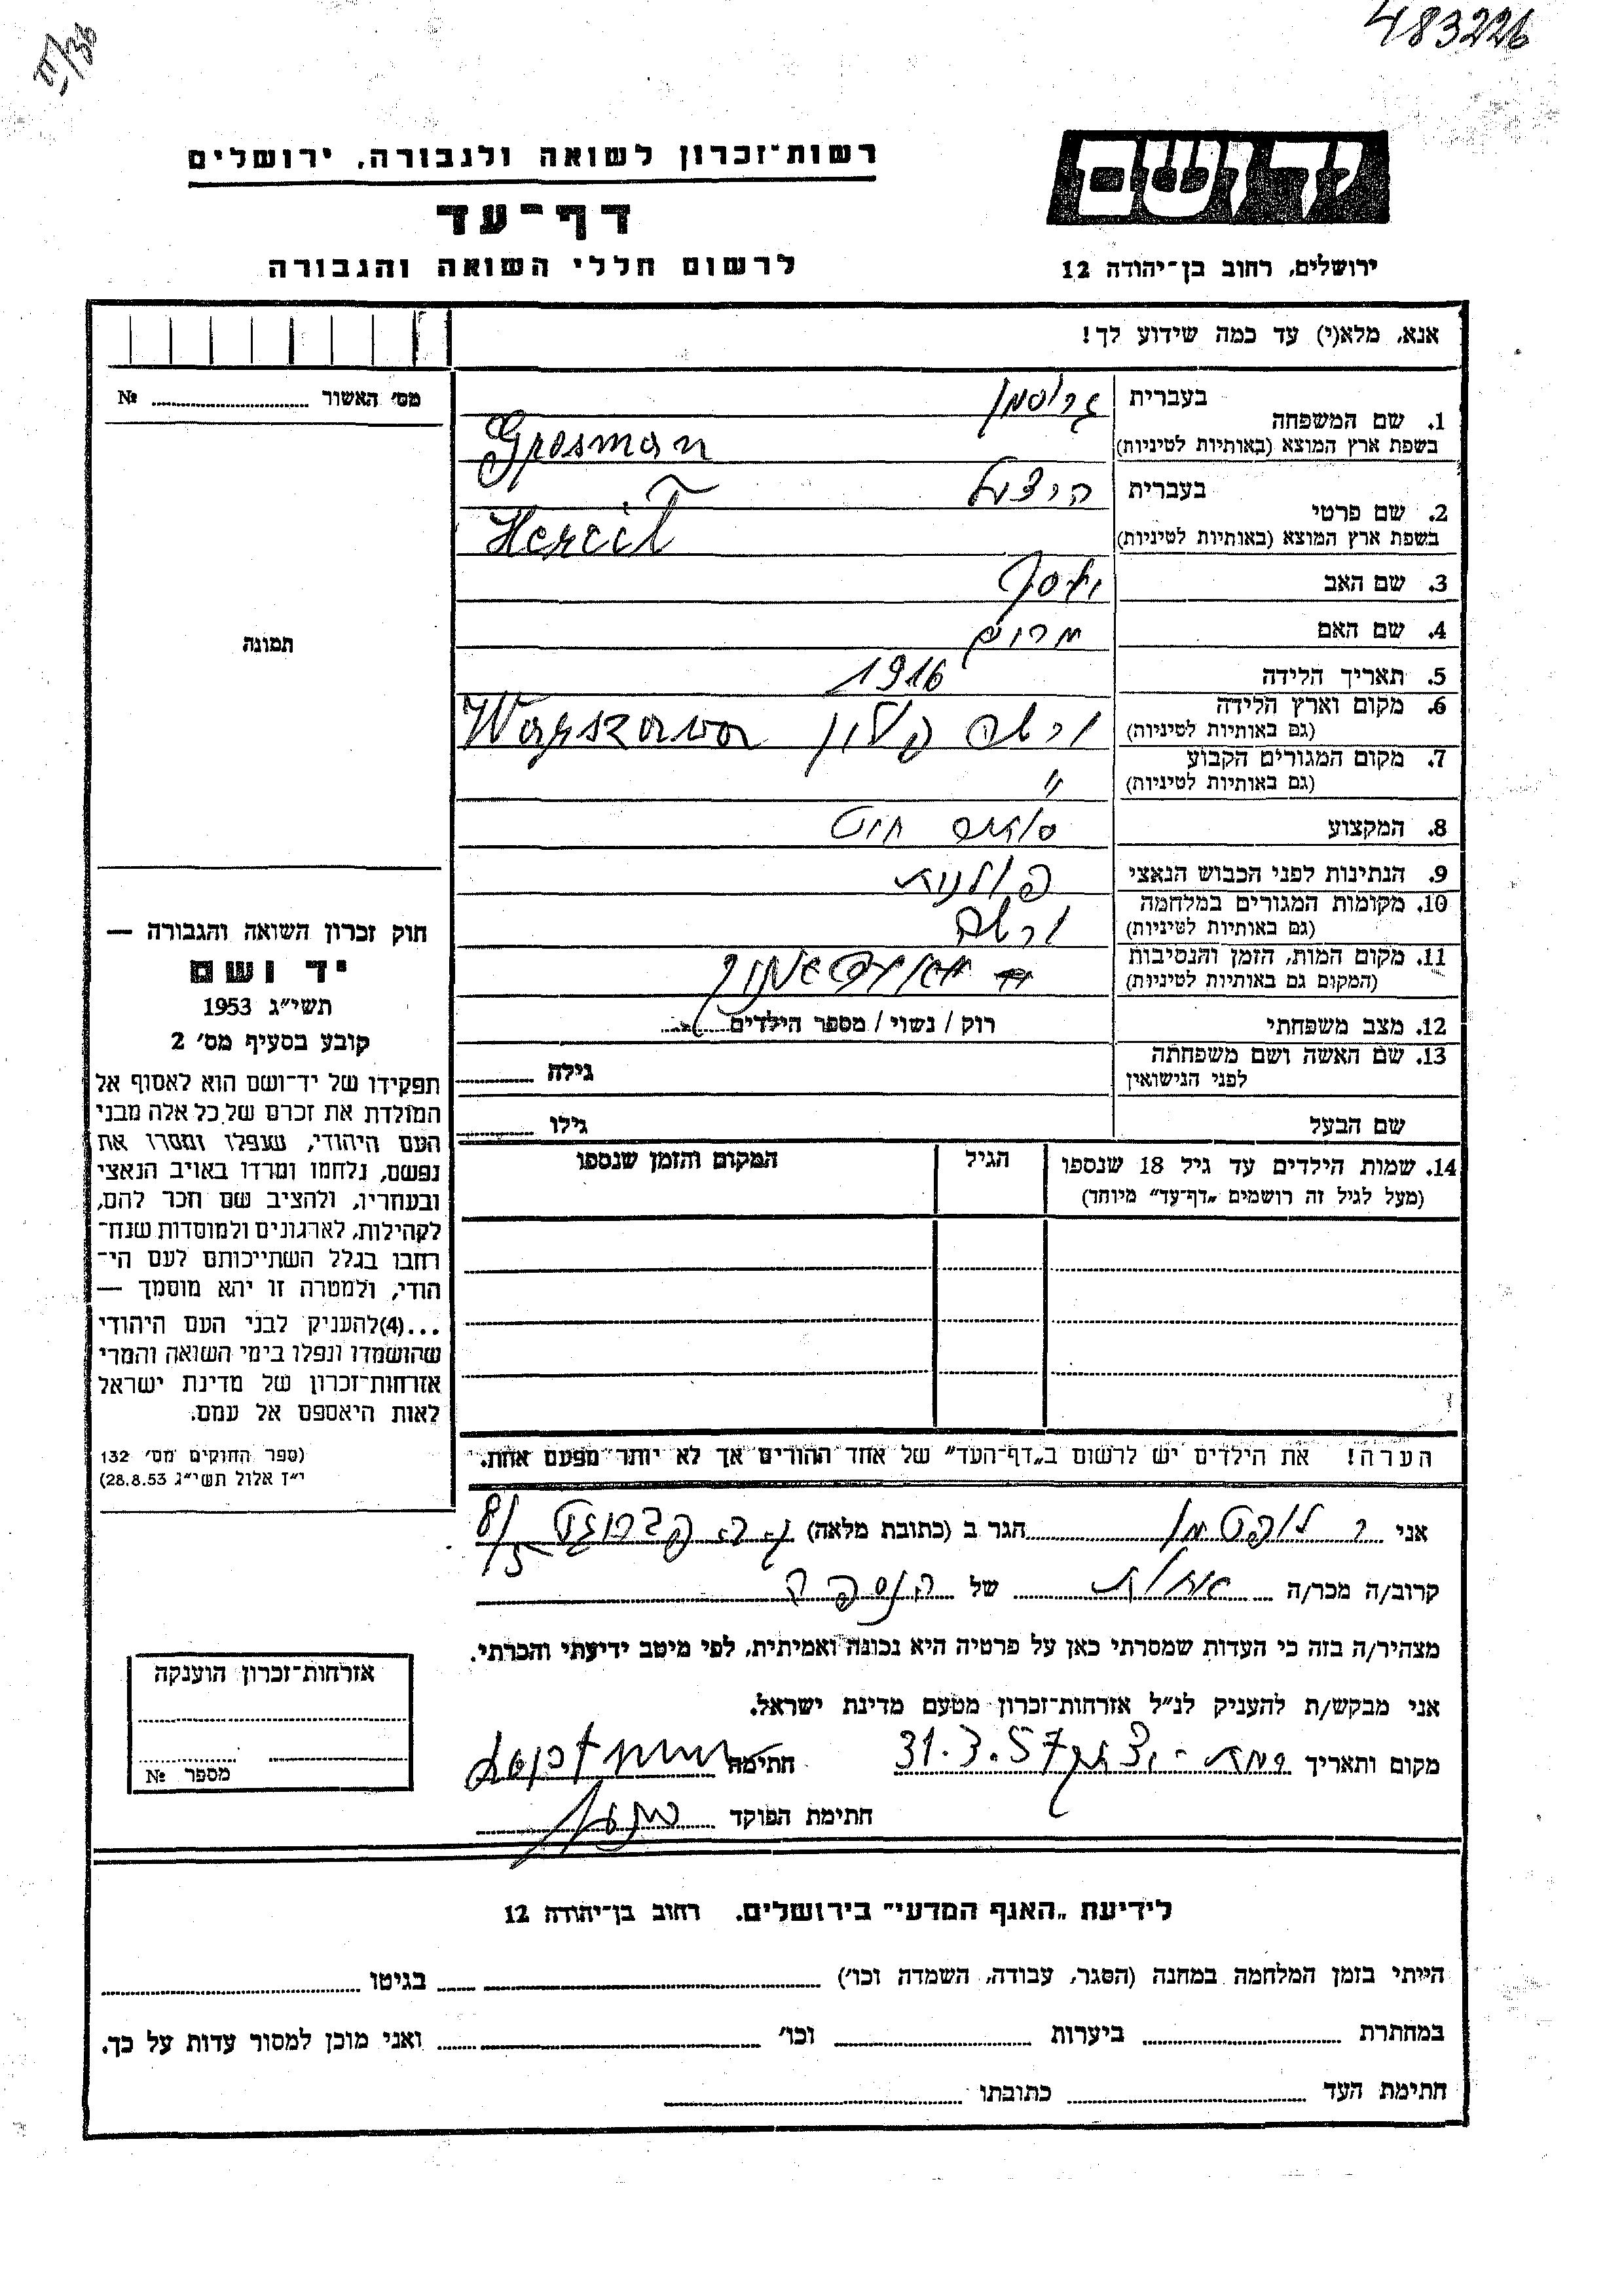 483226
II/36
יד ושם
ירושלים, רחוב בן־יהודה 12
רשות־זכרון לשואה ולגבורה, ירושלים
דף־עד
לרשום חללי השואה והגבורה
אנא, מלא(י) עד כמה שידוע לך!
מס׳ האשור № 
1. שם המשפחה בעברית גרוסמן
בשפת ארץ המוצא (באותיות לטיניות) Grosman
2. שם פרטי בעברית
בשפת ארץ המוצא (באותיות לטיניות)
3. שם האב יוסף
4. שם האם מרים
5. תאריך הלידה 1916
6. מקום וארץ הלידה (גם באותיות לטיניות) ורשה פולין Warszawa
7. מקום המגורים הקבוע (גם באותיות לטיניות) "
8. המקצוע
9. הנתינות לפני הכבוש הנאצי פולנית
10. מקומות המגורים במלחמה (גם באותיות לטיניות) ורשה
11. מקום המות, הזמן והנסיבות (המקום גם באותיות לטיניות)
12. מצב משפחתי רוק / נשוי / מספר הילדים
13. שם האשה ושם משפחתה לפני הנישואין גילה
שם הבעל גילו
14. שמות הילדים עד גיל 18 שנספו הגיל המקום והזמן שנספו
(מעל לגיל זה רושמים „דף־עד״ מיוחד)
הערה! את הילדים יש לרשום ב„דף־העד״ של אחד ההורים אך לא יותר מפעם אחת.
תמונה
חוק זכרון השואה והגבורה —
יד ושם
תשי״ג 1953
קובע בסעיף מס׳ 2
תפקידו של יד־ושם הוא לאסוף אל
המולדת את זכרם של כל אלה מבני
העם היהודי, שנפלו ומסרו את
נפשם, נלחמו ומרדו באויב הנאצי
ובעוזריו, ולהציב שם וזכר להם,
לקהילות, לארגונים ולמוסדות שנח־
רבו בגלל השתייכותם לעם הי־
הודי, ולמטרה זו יהא מוסמך —
...(4)להעניק לבני העם היהודי
שהושמדו ונפלו בימי השואה והמרי
אזרחות־זכרון של מדינת ישראל
לאות היאספם אל עמם.
(ספר החוקים מס׳ 132
י״ז אלול תשי״ג 28.8.53)
אני הגר ב (כתובת מלאה)
קרוב/ה מכר/ה אחות של הנספה
מצהיר/ה בזה כי העדות שמסרתי כאן על פרטיה היא נכונה ואמיתית, לפי מיטב ידיעתי והכרתי.
אני מבקש/ת להעניק לנ״ל אזרחות־זכרון מטעם מדינת ישראל.
מקום ותאריך 31.3.57 חתימה
חתימת הפוקד
אזרחות־זכרון הוענקה
מספר №
לידיעת „האגף המדעי״ בירושלים. רחוב בן־יהודה 12
הייתי בזמן המלחמה במחנה (הסגר, עבודה, השמדה וכו׳) בגיטו
במחתרת ביערות וכו׳ ואני מוכן למסור עדות על כך.
חתימת העד כתובתו